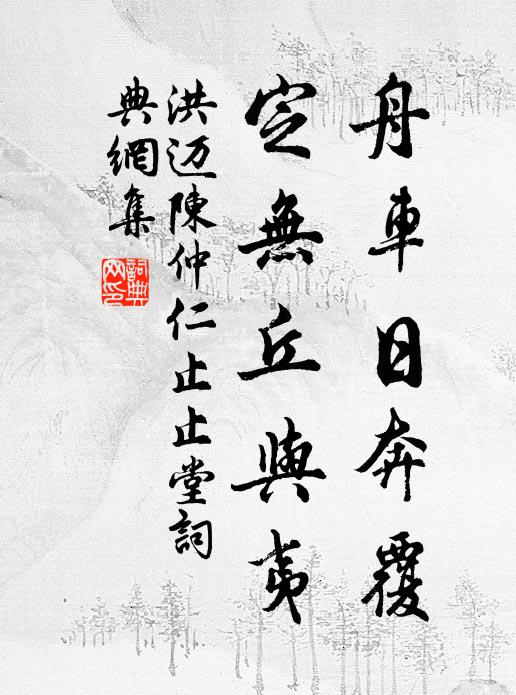 舟車日奔覆
定無丘與夷
洪迈陳仲仁止止堂詞
典網集
詞典网印